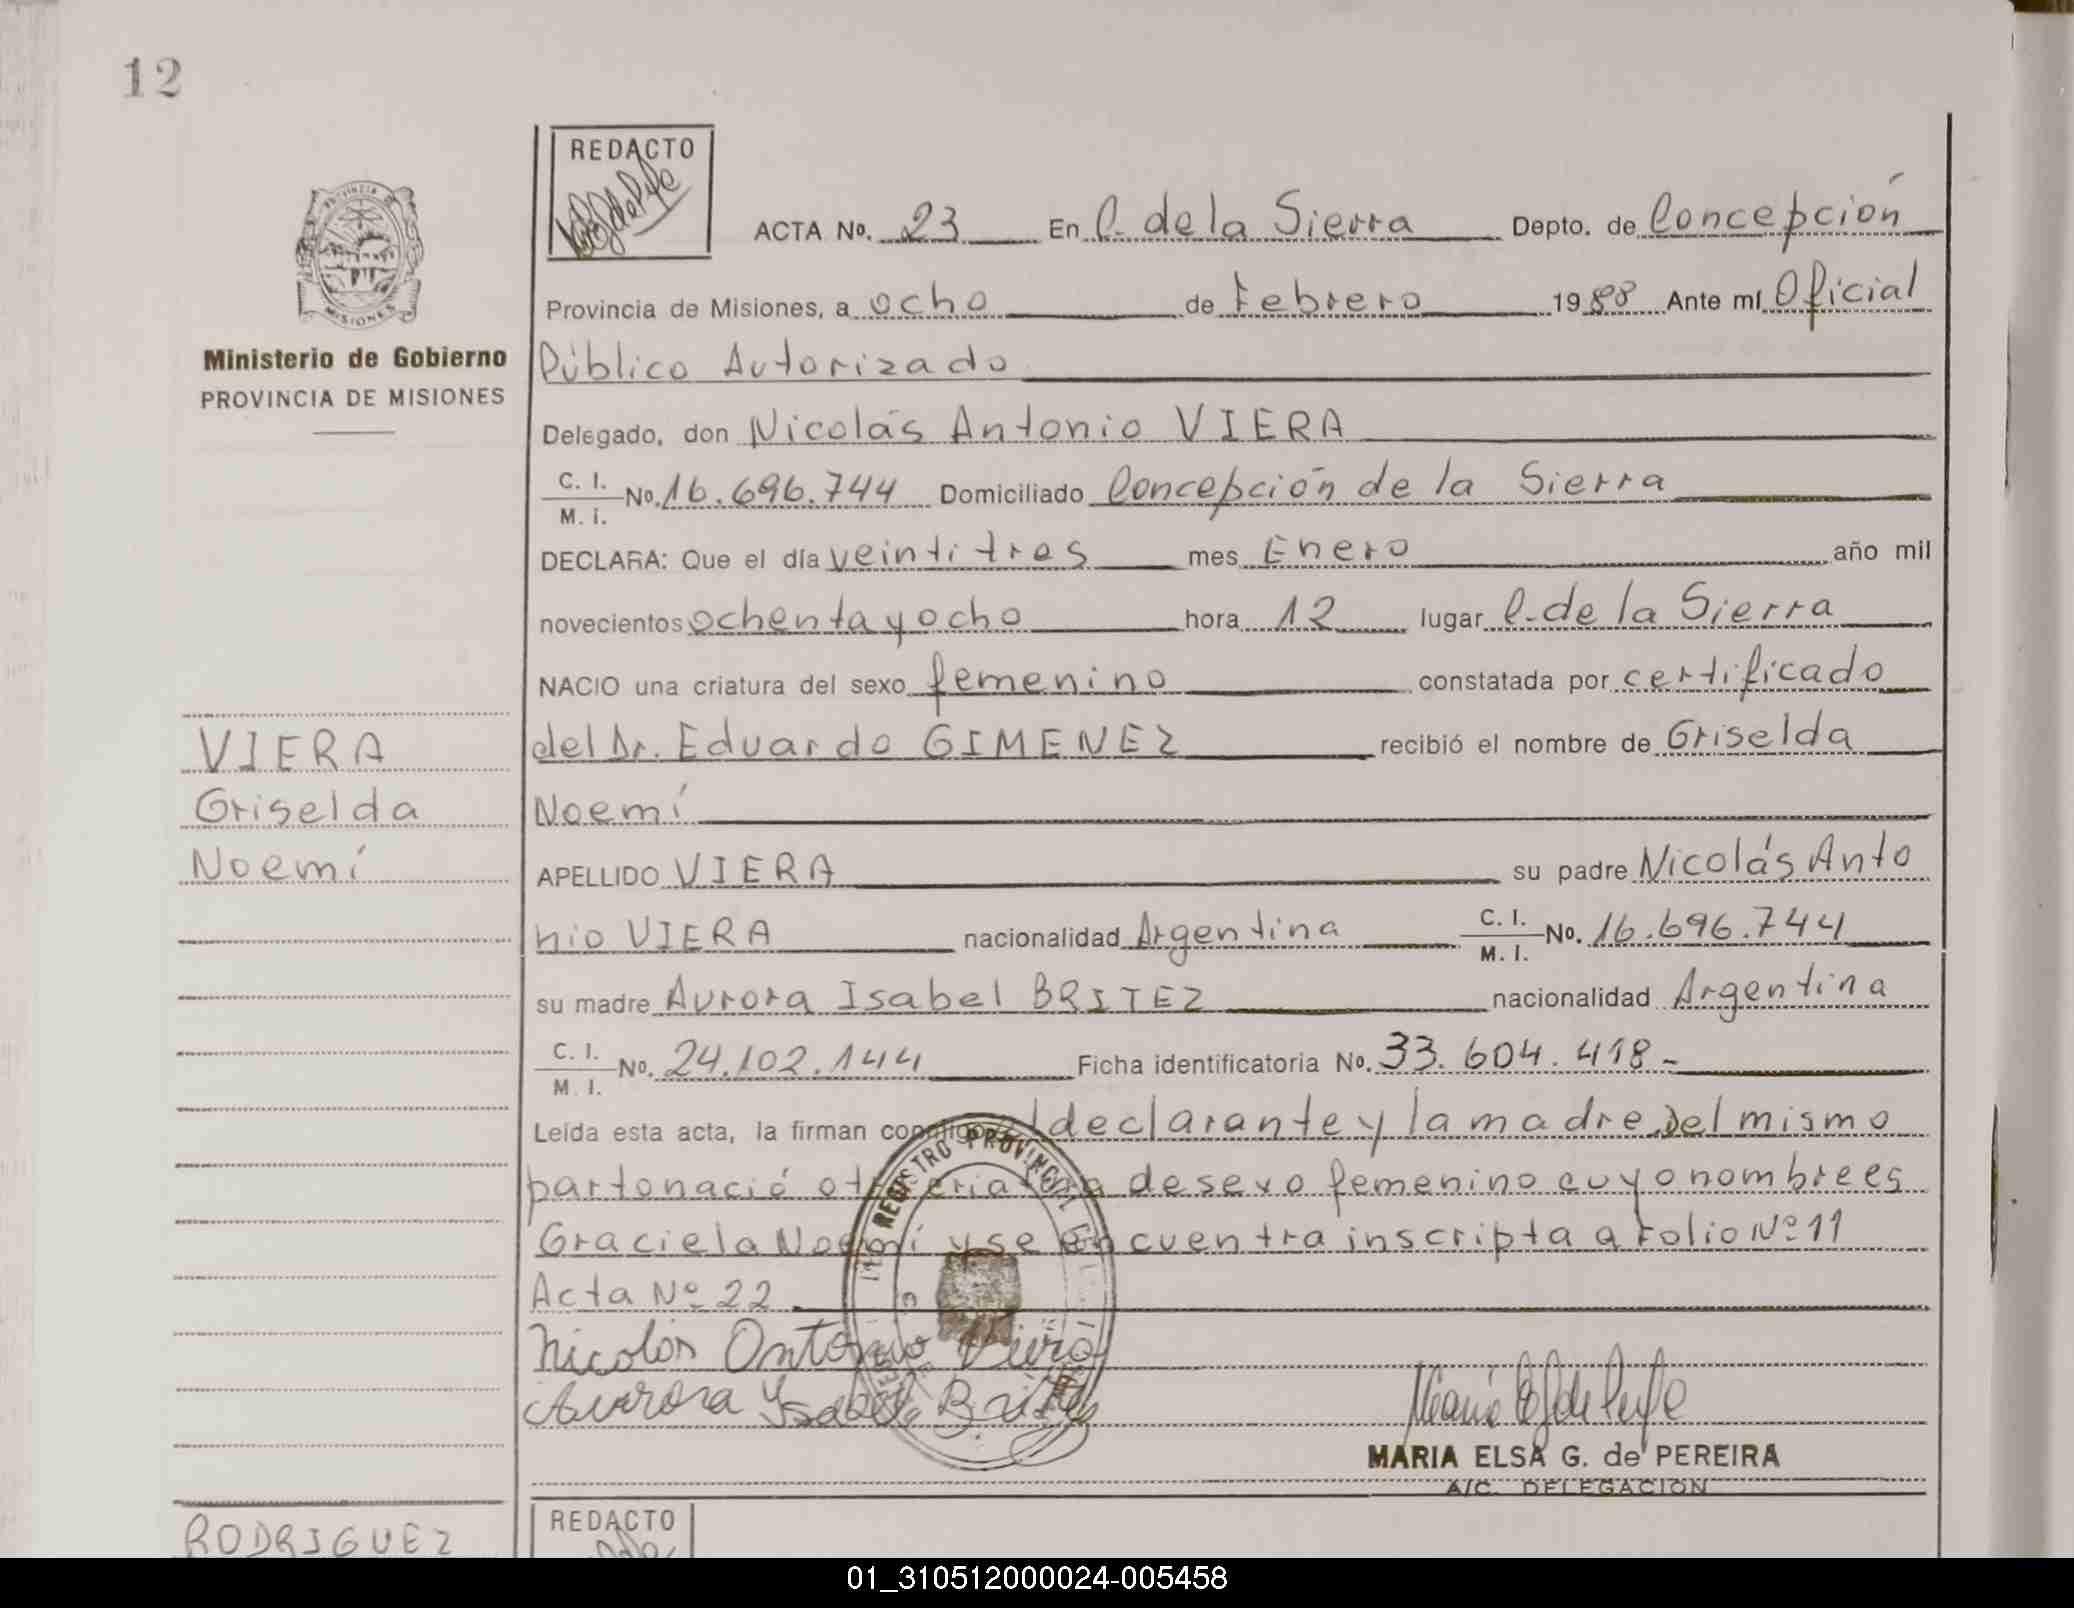 12
REDACTO
PROVINCIA DE
MISIONES
Ministerio de Gobierno
PROVINCIA DE MISIONES
ACTA No. 23 En C. de la Sierra Depto. de Concepción
Provincia de Misiones, a ocho de Febrero 1988 Ante mí Oficial
Público Autorizado
Delegado, don Nicolás Antonio VIERA
C. I.
M. i. No. 16.696.744 Domiciliado Concepción de la Sierra
DECLARA: Que el día veintitres mes Enero año mil
novecientos ochenta y ocho hora 12 lugar C. de la Sierra
NACIO una criatura del sexo femenino constatada por certificado
del Dr. Eduardo GIMENEZ recibió el nombre de Griselda
Noemí
APELLIDO VIERA su padre Nicolás Anto
nio VIERA nacionalidad Argentina C. I.
M. I. No. 16.696.744
su madre Aurora Isabel BRITEZ nacionalidad Argentina
C. I.
M. I. No. 24.102.144 Ficha identificatoria No. 33.604.418-
Leída esta acta, la firman conmigo el declarante y la madre. Del mismo
parto nació otra criatura de sexo femenino cuyo nombre es
Graciela Noemí y se encuentra inscripta a Folio Nº 11
Acta Nº 22
Nicolás Antonio Viera
Aurora Ysabel Britez
MARIA ELSA G. de PEREIRA
A/C. DELEGACION
REGISTRO PROVINCIAL
VIERA
Griselda
Noemí
RODRIGUEZ
REDACTO
01_310512000024-005458